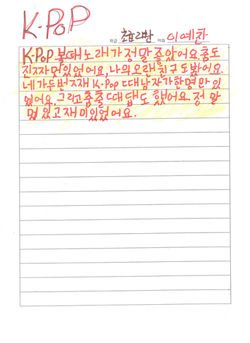 K-POP
초등2학년 이예찬
K-POP 볼때 노래가 정말 좋았어요. 춤도
진짜 멋있었어요, 나의 오랜 친구도 봤어요.
네가 두번째 K-POP 때 남자가 한명만 있
었어요, 그리고 춤출때 탭도 했어요. 정말
멋있고 재미있었어요.